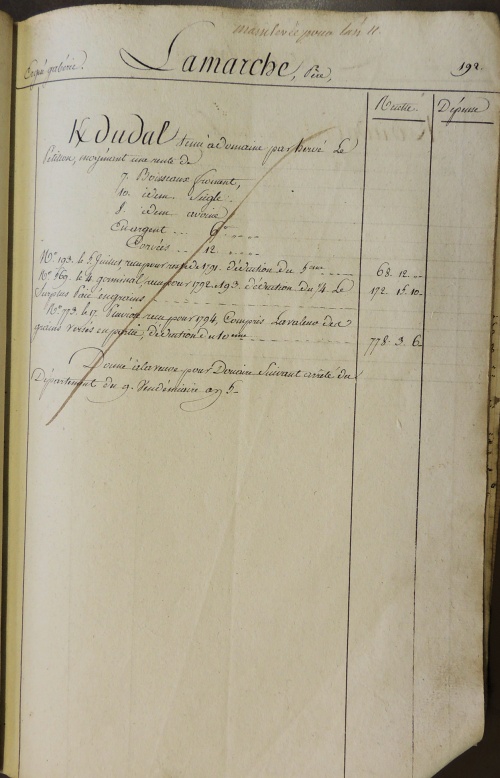 mainlevée pour l'an 11.
Ergué gabéric. Lamarche, Père, 192.
Recette Dépense
Kdudal tenu à domaine par hervé Le
Pétillon, moyénant une rente de
7. Boisseaux froment,
10. idem Seigle
8. idem avoine
En argent ... 6# ...
Corvées ... 12. ...
No. 193. le 5. Juillet, reçu pour reste de 1791. déduction du 5ème ... 68. 12. ..
No. 569. le 4. germinal, reçu pour 1792. et 93. déduction du 1/4 Le
Surplus Païé en grains ... 172. 15. 10.
No. 773. le 17. reçu pour 1794, Compris La valeur des
grains versés en partie, déduction du 10ème 778. 3. 6.
Donné à la veuve pour Douaire Suivant arrêté du
Département du 9. Vendémiaire an 5.